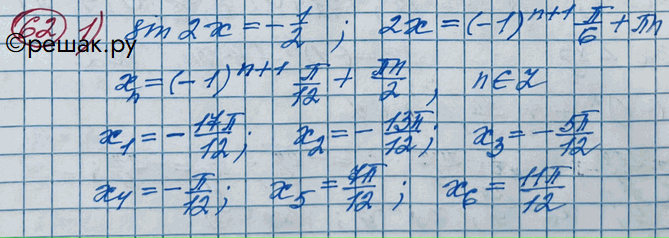 62 1) sin 2x = -1/2 ; 2x = (-1)^{n+1} π/6 + πn
©reшак.ру
x_n = (-1)^{n+1} π/12 + πn/2 , n ∈ Z
x_1 = -17π/12; x_2 = -13π/12; x_3 = -5π/12
x_4 = -π/12; x_5 = 7π/12; x_6 = 11π/12